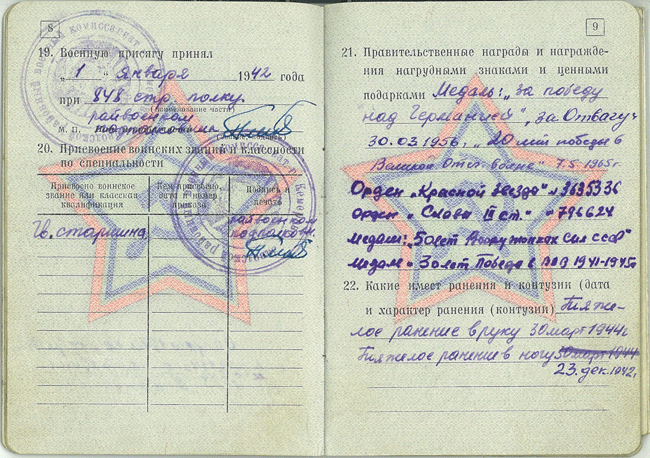 8
19. Военную присягу принял
„1“ января 1942 года
при 848 стр. полку
(наименование части)
райвоенком
М. П.
20. Присвоение воинских званий и классности
по специальности
Присвоено воинское
звание или классная
квалификация
Кем присвоено,
дата и номер
приказа
Подпись и
печать
Гв. старшина
райвоенком
подполковн.
9
21. Правительственные награды и награжде-
ния нагрудными знаками и ценными
подарками Медаль: „За победу
над Германией“, „За Отвагу“
30.03.1956, „20 лет победы в
Великой Отеч. войне“ 7.5.1965г
Орден „Красной Звезды“ № 3635336
орден „Славы III ст.“ № 796624
медаль: „50 лет Вооруженных Сил СССР“
медаль „30 лет Победы в ВОВ 1941-1945г
22. Какие имеет ранения и контузии (дата
и характер ранения (контузии) Тяже-
лое ранение в руку 30 март 1944г
Тяжелое ранение в ногу 30 март 1944
23. дек. 1942г